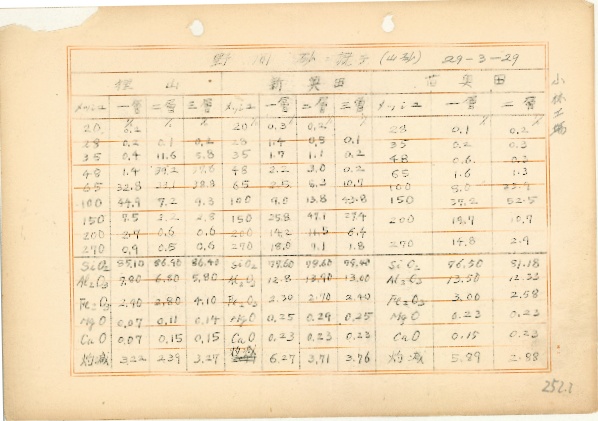 砂 (山砂) 29-3-29
小林工場
山 新奥田 古奥田
メッシュ 一層 二層 三層 メッシュ 一層 二層 三層 メッシュ 一層 二層
20 0.2 20 0.3 0.2 28 0.1 0.2
28 0.2 0.1 0.2 28 1.4 0.5 0.1 35 0.2 0.3
35 0.4 11.6 5.8 35 1.7 1.1 0.2 48 0.6 0.3
48 1.4 39.2 48 2.2 3.0 0.2 65 1.6 1.3
65 32.8 65 5.3 10.7 100 5.0
100 44.9 7.2 9.3 100 9.0 13.8 43.8 150 39.2 52.5
150 7.5 3.2 2.8 150 25.8 47.1 27.4 200 19.7 10.7
200 0.6 0.6 200 14.2 11.5 6.4
270 0.9 0.5 0.6 270 18.0 9.1 1.8 270 14.8 2.9
SiO2 85.10 86.90 86.40 SiO2 77.60 79.60 79.40 SiO2 76.50 81.18
Al2O3 7.90 6.80 5.80 Al2O3 12.8 13.90 13.00 Al2O3 13.50 12.33
Fe2O3 2.90 2.80 4.10 Fe2O3 2.30 2.70 2.40 Fe2O3 3.00 2.58
MgO 0.07 0.11 0.14 MgO 0.25 0.29 0.25 MgO 0.23 0.23
CaO 0.07 0.15 0.15 CaO 0.23 0.23 0.23 CaO 0.15 0.23
灼減 3.22 2.39 3.27 灼減 6.27 3.71 3.76 灼減 5.89 2.88